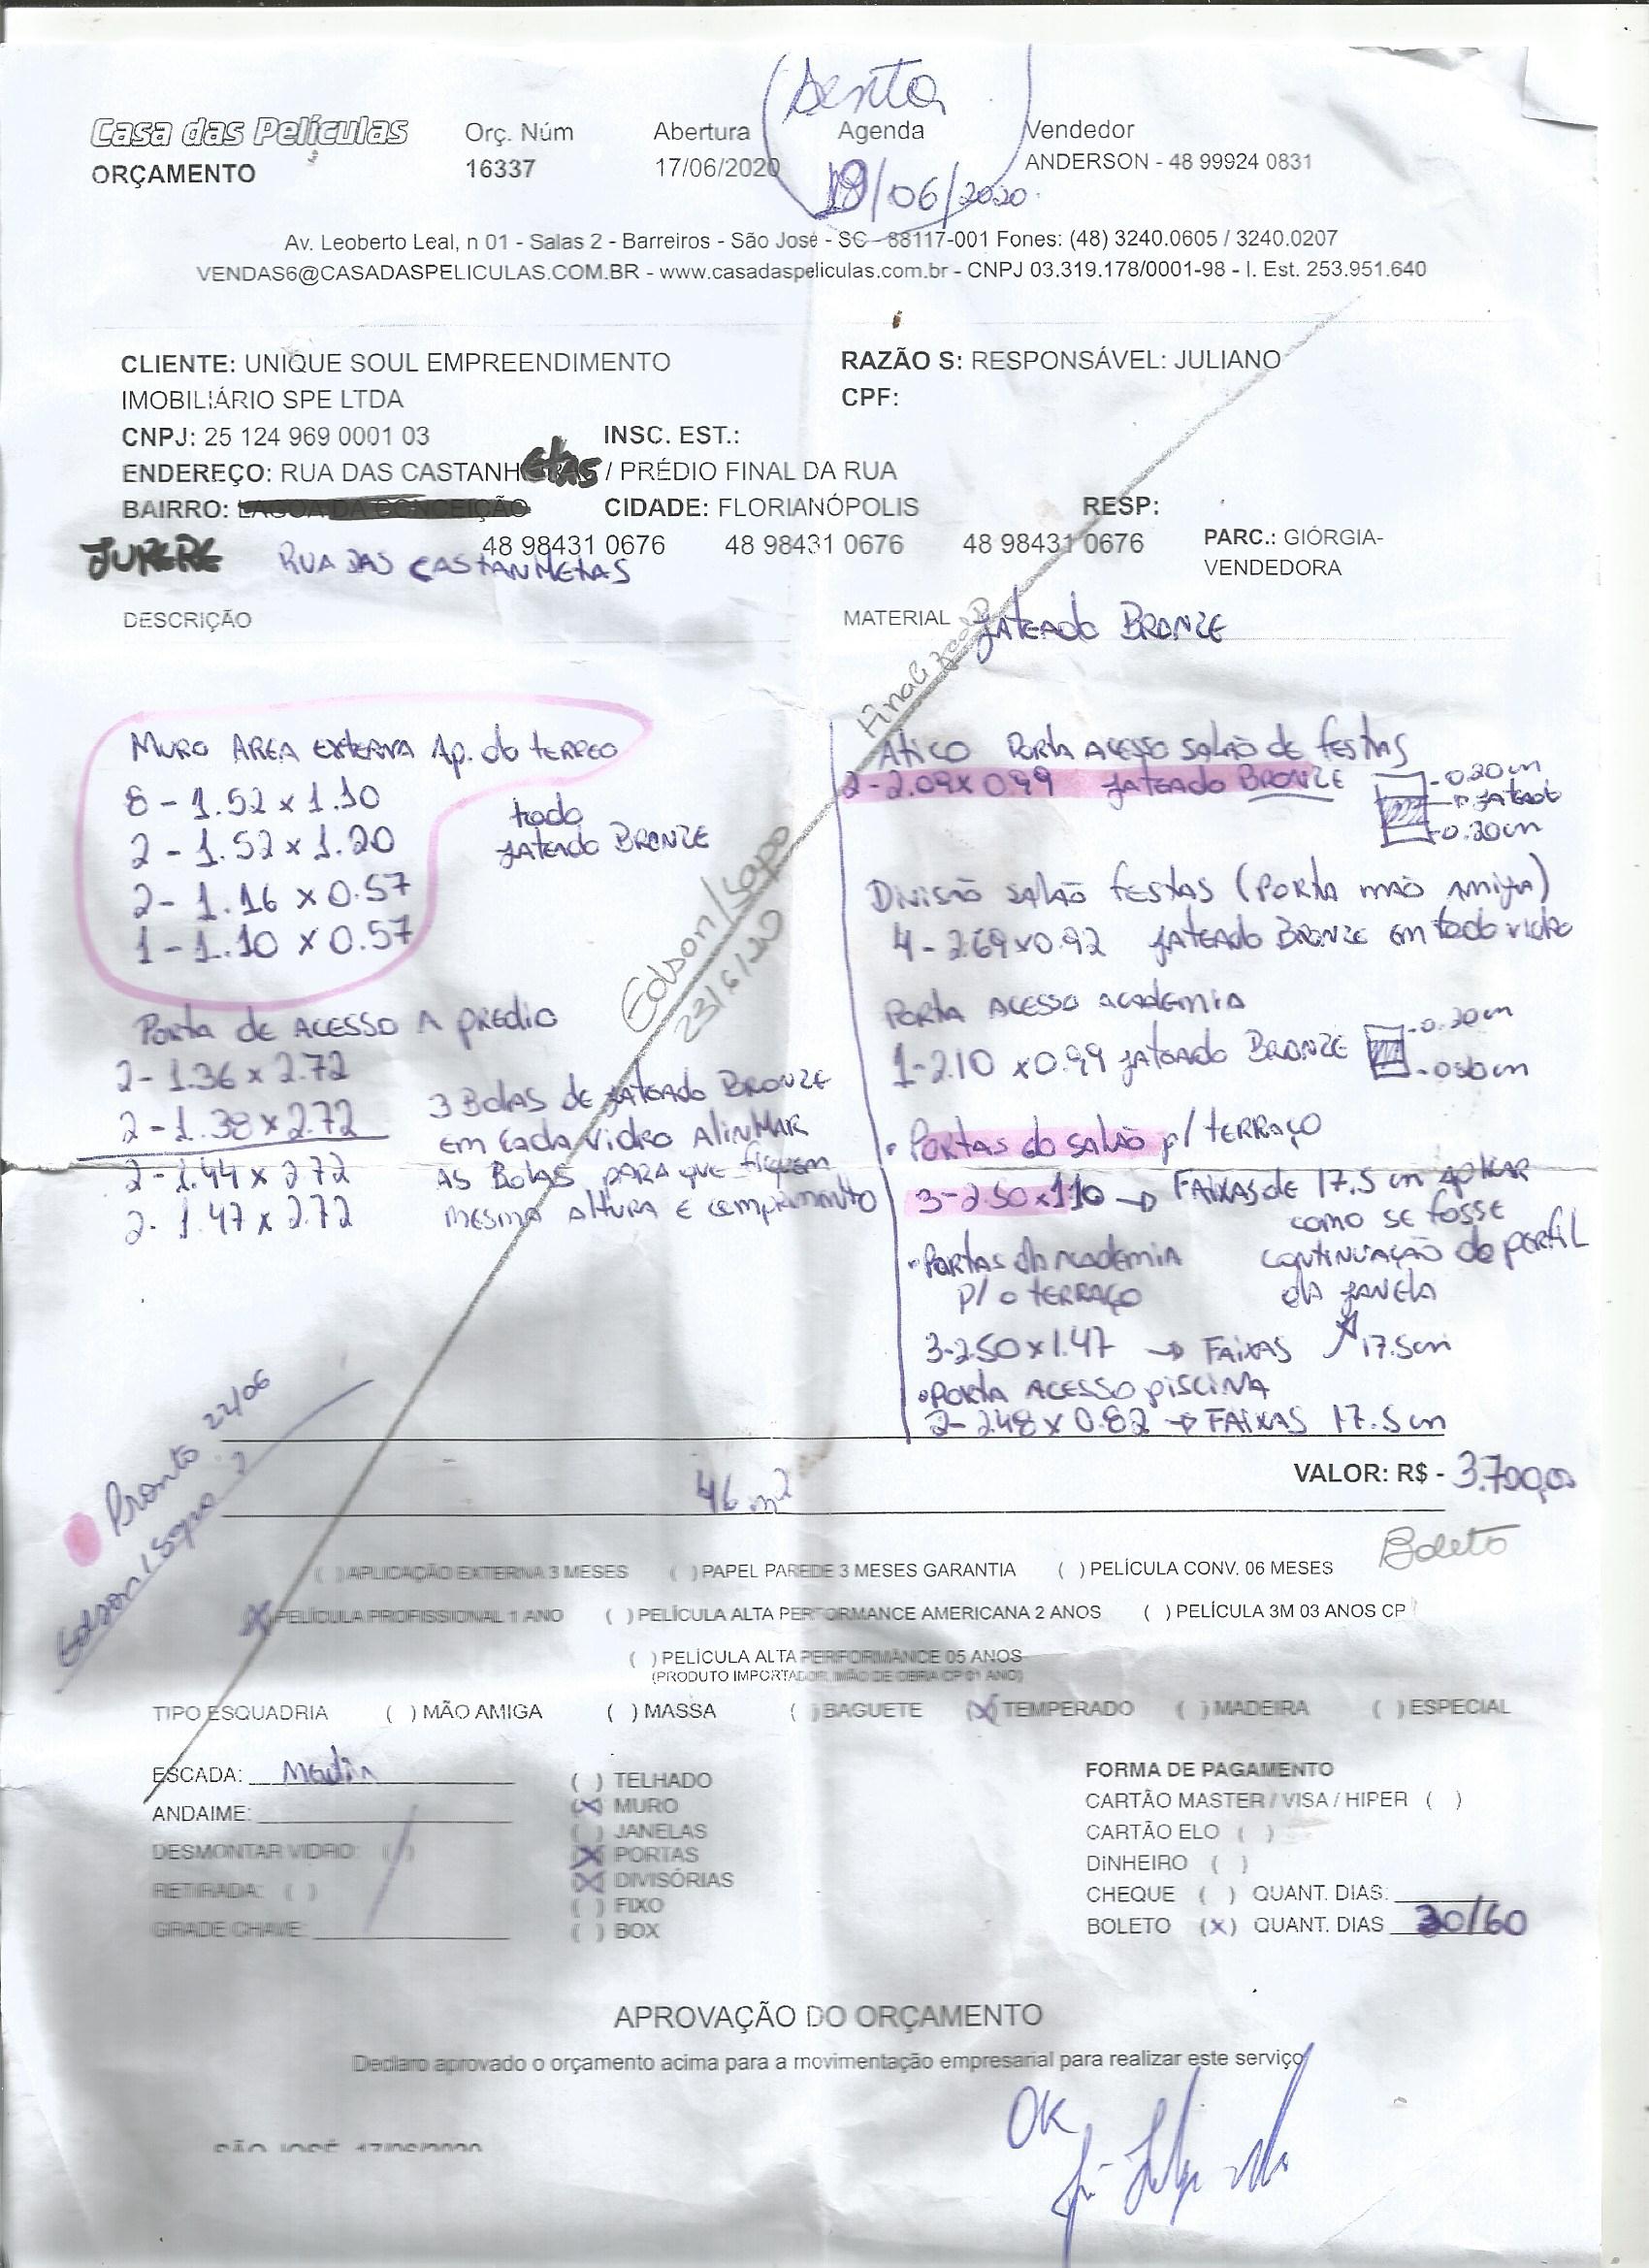 (Sexta)
Casa das Películas
ORÇAMENTO
Orç. Núm
16337
Abertura
17/06/2020
Agenda
19/06/2020
Vendedor
ANDERSON - 48 99924 0831
Av. Leoberto Leal, n 01 - Salas 2 - Barreiros - São José - SC - 88117-001 Fones: (48) 3240.0605 / 3240.0207
VENDAS6@CASADASPELICULAS.COM.BR - www.casadaspeliculas.com.br - CNPJ 03.319.178/0001-98 - I. Est. 253.951.640
CLIENTE: UNIQUE SOUL EMPREENDIMENTO
IMOBILIÁRIO SPE LTDA
RAZÃO S: RESPONSÁVEL: JULIANO
CPF:
CNPJ: 25 124 969 0001 03 INSC. EST.:
ENDEREÇO: RUA DAS CASTANHETAS / PRÉDIO FINAL DA RUA
BAIRRO: LAGOA DA CONCEIÇÃO CIDADE: FLORIANÓPOLIS RESP:
JURERE RUA DAS CASTANHETAS
48 98431 0676 48 98431 0676 48 98431 0676
PARC.: GIÓRGIA-
VENDEDORA
DESCRIÇÃO
MATERIAL JATEADO BRONZE
Finalizado
Edson/Sapo
23/6/20
MURO AREA EXTERNA Ap. do TERREO
8 - 1.52 x 1.10
2 - 1.52 x 1.20
2 - 1.16 x 0.57
1 - 1.10 x 0.57
todo
JATEADO BRONZE
PORTA DE ACESSO A PREDIO
2 - 1.36 x 2.72
2 - 1.38 x 2.72
2 - 1.44 x 2.72
2 - 1.47 x 2.72
3 Bolas de JATEADO BRONZE
EM CADA VIDRO ALINHAR
AS BOLAS PARA QUE FIQUEM
MESMA ALTURA E COMPRIMENTO
ATICO PORTA ACESSO SALÃO DE FESTAS
2 - 2.09 x 0.99 JATEADO BRONZE
- 0.20 cm
JATEADO
- 0.20 cm
DIVISÃO SALÃO FESTAS (PORTA MÃO AMIGA)
4 - 2.69 x 0.92 JATEADO BRONZE EM todo vidro
PORTA ACESSO ACADEMIA
1 - 2.10 x 0.99 JATEADO BRONZE
- 0.20 cm
• PORTAS do SALÃO p/ TERRAÇO
3 - 2.50 x 1.10 → FAIXAS DE 17.5 cm APLICAR
como SE FOSSE
CONTINUAÇÃO do PERFIL
DA JANELA
• PORTAS DA ACADEMIA
p/ o TERRAÇO
3 - 2.50 x 1.47 → FAIXAS 17.5 cm
• PORTA ACESSO PISCINA
2 - 2.48 x 0.82 → FAIXAS 17.5 cm
Pronto 22/06
Edson / Sapo
46 m2
VALOR: R$ - 3.700,00
Boleto
( ) APLICAÇÃO EXTERNA 3 MESES ( ) PAPEL PAREDE 3 MESES GARANTIA ( ) PELÍCULA CONV. 06 MESES
(X) PELÍCULA PROFISSIONAL 1 ANO ( ) PELÍCULA ALTA PERFORMANCE AMERICANA 2 ANOS ( ) PELÍCULA 3M 03 ANOS CP
( ) PELÍCULA ALTA PERFORMANCE 05 ANOS
(PRODUTO IMPORTADOR, MÃO DE OBRA CP 01 ANO)
TIPO ESQUADRIA ( ) MÃO AMIGA ( ) MASSA ( ) BAGUETE (X) TEMPERADO ( ) MADEIRA ( ) ESPECIAL
ESCADA: Media
ANDAIME:
DESMONTAR VIDRO: ( )
RETIRADA: ( )
GRADE CHAVE:
( ) TELHADO
(X) MURO
( ) JANELAS
(X) PORTAS
(X) DIVISÓRIAS
( ) FIXO
( ) BOX
FORMA DE PAGAMENTO
CARTÃO MASTER / VISA / HIPER ( )
CARTÃO ELO ( )
DINHEIRO ( )
CHEQUE ( ) QUANT. DIAS:
BOLETO (X) QUANT. DIAS 30/60
APROVAÇÃO DO ORÇAMENTO
Declaro aprovado o orçamento acima para a movimentação empresarial para realizar este serviço
OK
SÃO JOSÉ, 17/06/2020